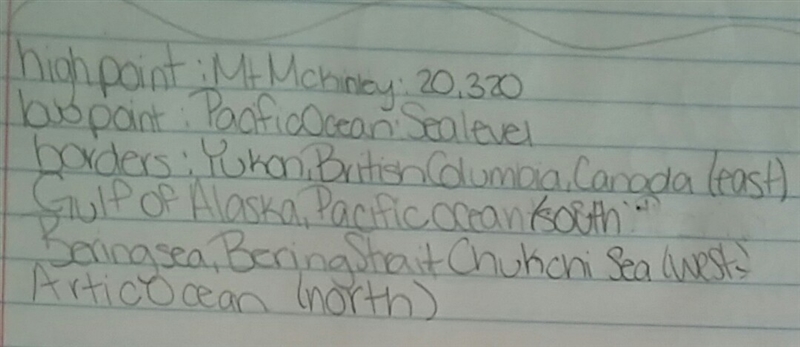 high point : Mt Mckinley : 20,320
low point : Pacific Ocean : Sea level
borders : Yukon, British Columbia, Canada (east)
Gulf of Alaska, Pacific ocean (south)
Bering sea, Bering Strait Chukchi Sea (west)
Artic Ocean (north)